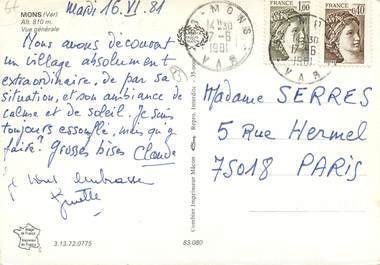 64
MONS (Var)
Alt. 810 m.
Vue générale
Mardi 16.VI.81
Nous avons découvert
un village absolument
extraordinaire, de par sa
situation, et son ambiance de
calme et de soleil. Je suis
toujours essoufflé, mais qu'y
faire? Grosses bises Claude
je vous embrasse
83-MONS
14H30
17-6
1981
VAR
1,00
0,40
Madame SERRES
5 Rue Hermel
75018 PARIS
Combier Imprimeur Mâcon
Repro. Interdite
Image de France
Imprimée en France
3.13.72.0775
83.080